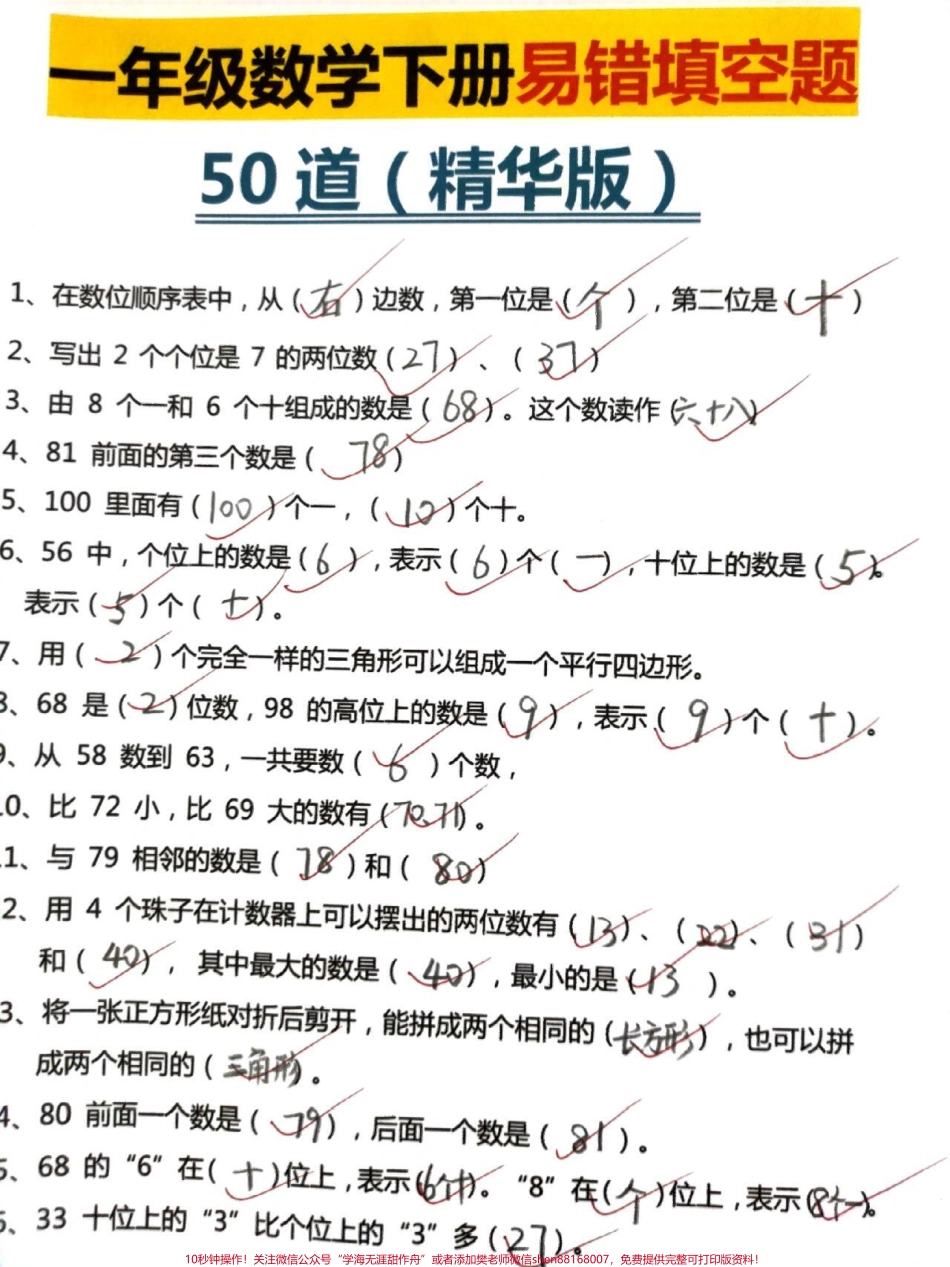 一年级数学下册易错填空题
50 道（精华版）
1、在数位顺序表中，从（右）边数，第一位是（个），第二位是（十）
2、写出 2 个个位是 7 的两位数（27）、（37）
3、由 8 个一和 6 个十组成的数是（68）。这个数读作（六十八）
4、81 前面的第三个数是（78）
5、100 里面有（100）个一，（10）个十。
6、56 中，个位上的数是（6），表示（6）个（一），十位上的数是（5）。
表示（5）个（十）。
7、用（2）个完全一样的三角形可以组成一个平行四边形。
8、68 是（2）位数，98 的高位上的数是（9），表示（9）个（十）。
9、从 58 数到 63，一共要数（6）个数，
.0、比 72 小，比 69 大的数有（70、71）。
.1、与 79 相邻的数是（78）和（80）
2、用 4 个珠子在计数器上可以摆出的两位数有（13）、（22）、（31）
和（40），其中最大的数是（40），最小的是（13）。
3、将一张正方形纸对折后剪开，能拼成两个相同的（长方形），也可以拼
成两个相同的（三角形）。
4、80 前面一个数是（79），后面一个数是（81）。
5、68 的“6”在（十）位上，表示（6个十）。“8”在（个）位上，表示（8个一）。
6、33 十位上的“3”比个位上的“3”多（27）。
10秒钟操作！关注微信公众号“学海无涯甜作舟”或者添加樊老师微信shen88168007，免费提供完整可打印版资料！